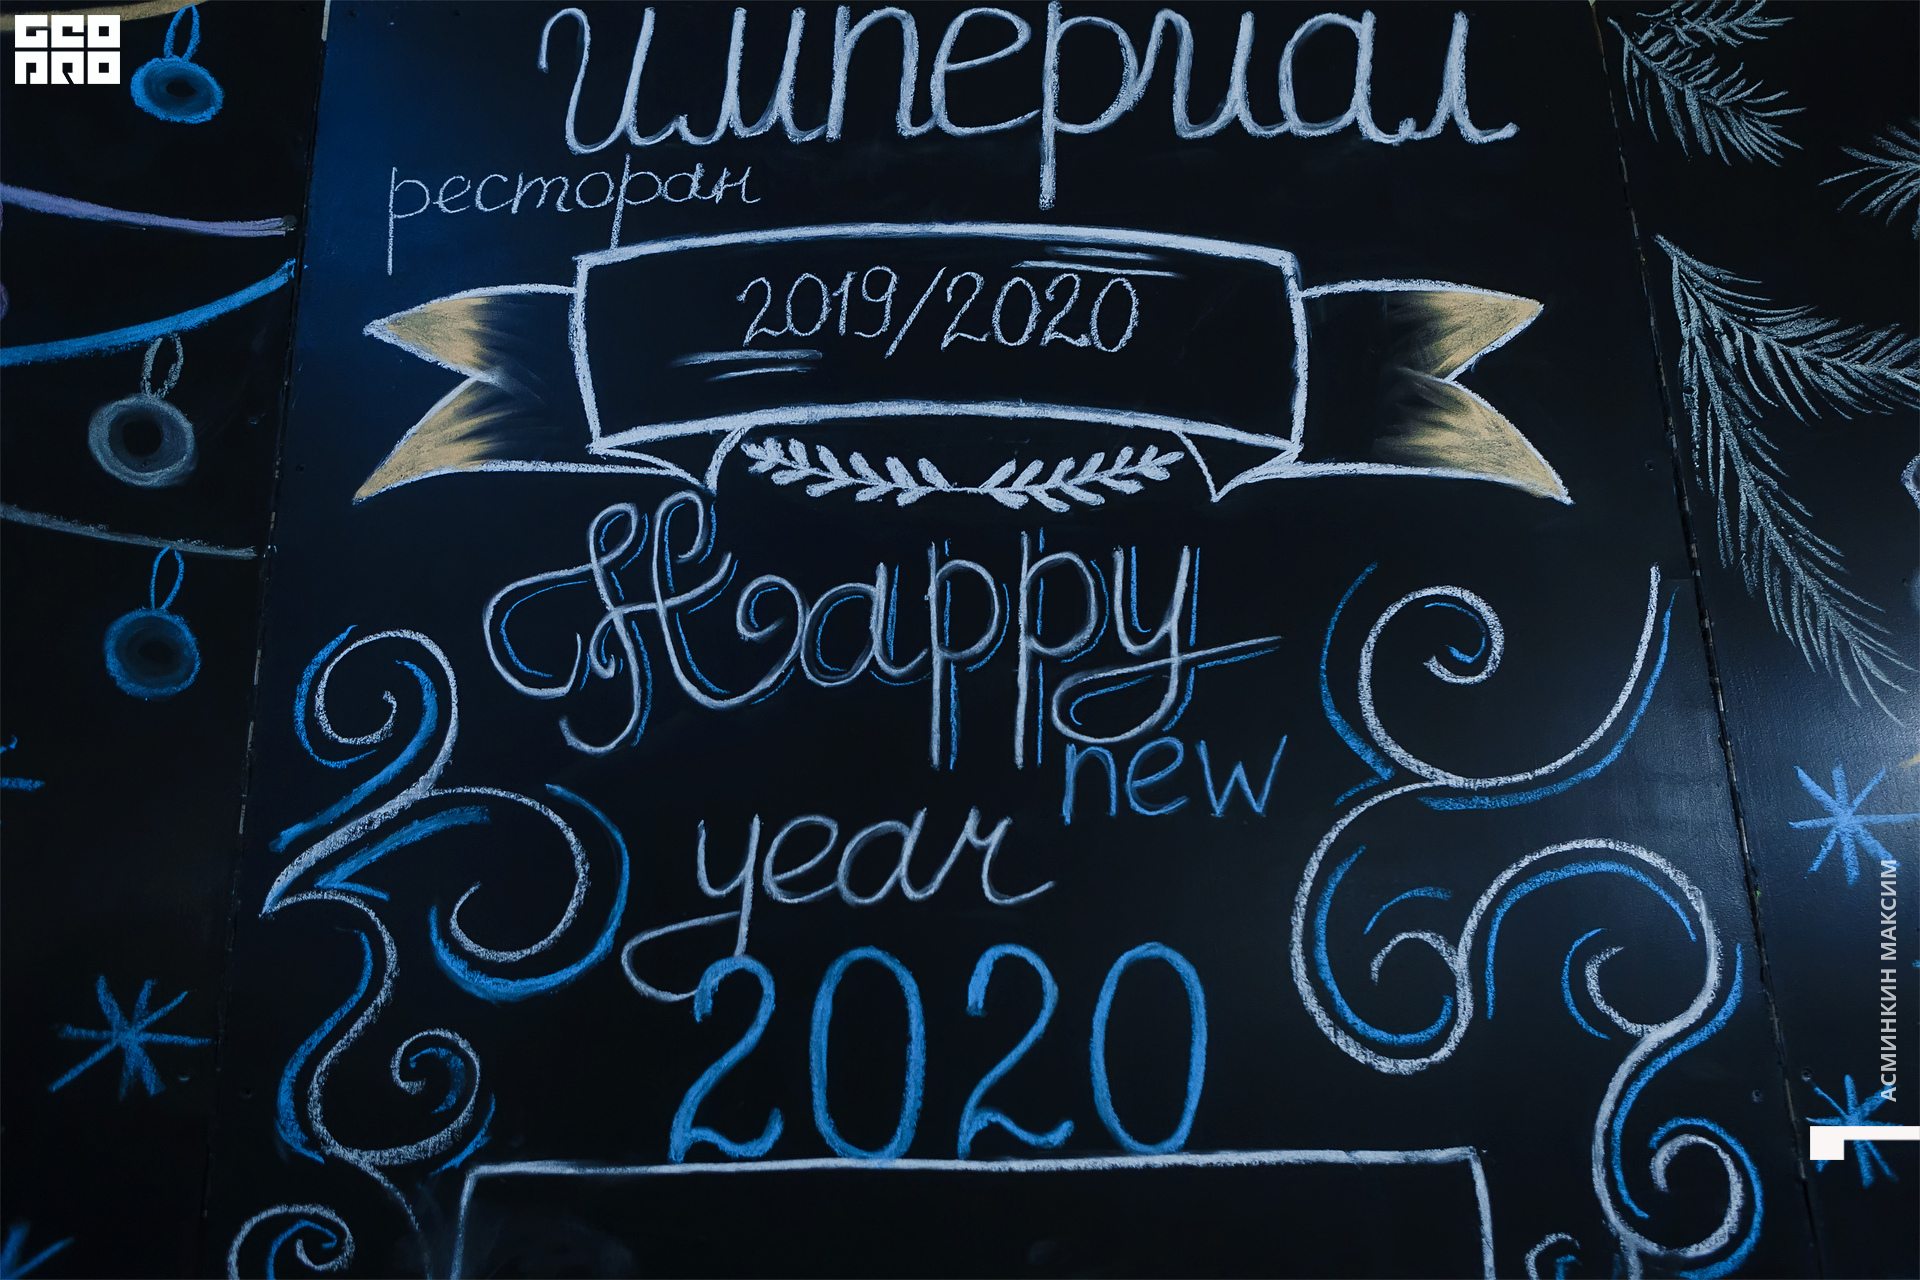 GEO
PRO
империал
ресторан
2019/2020
Happy
new
year
2020
АСМИНКИН МАКСИМ